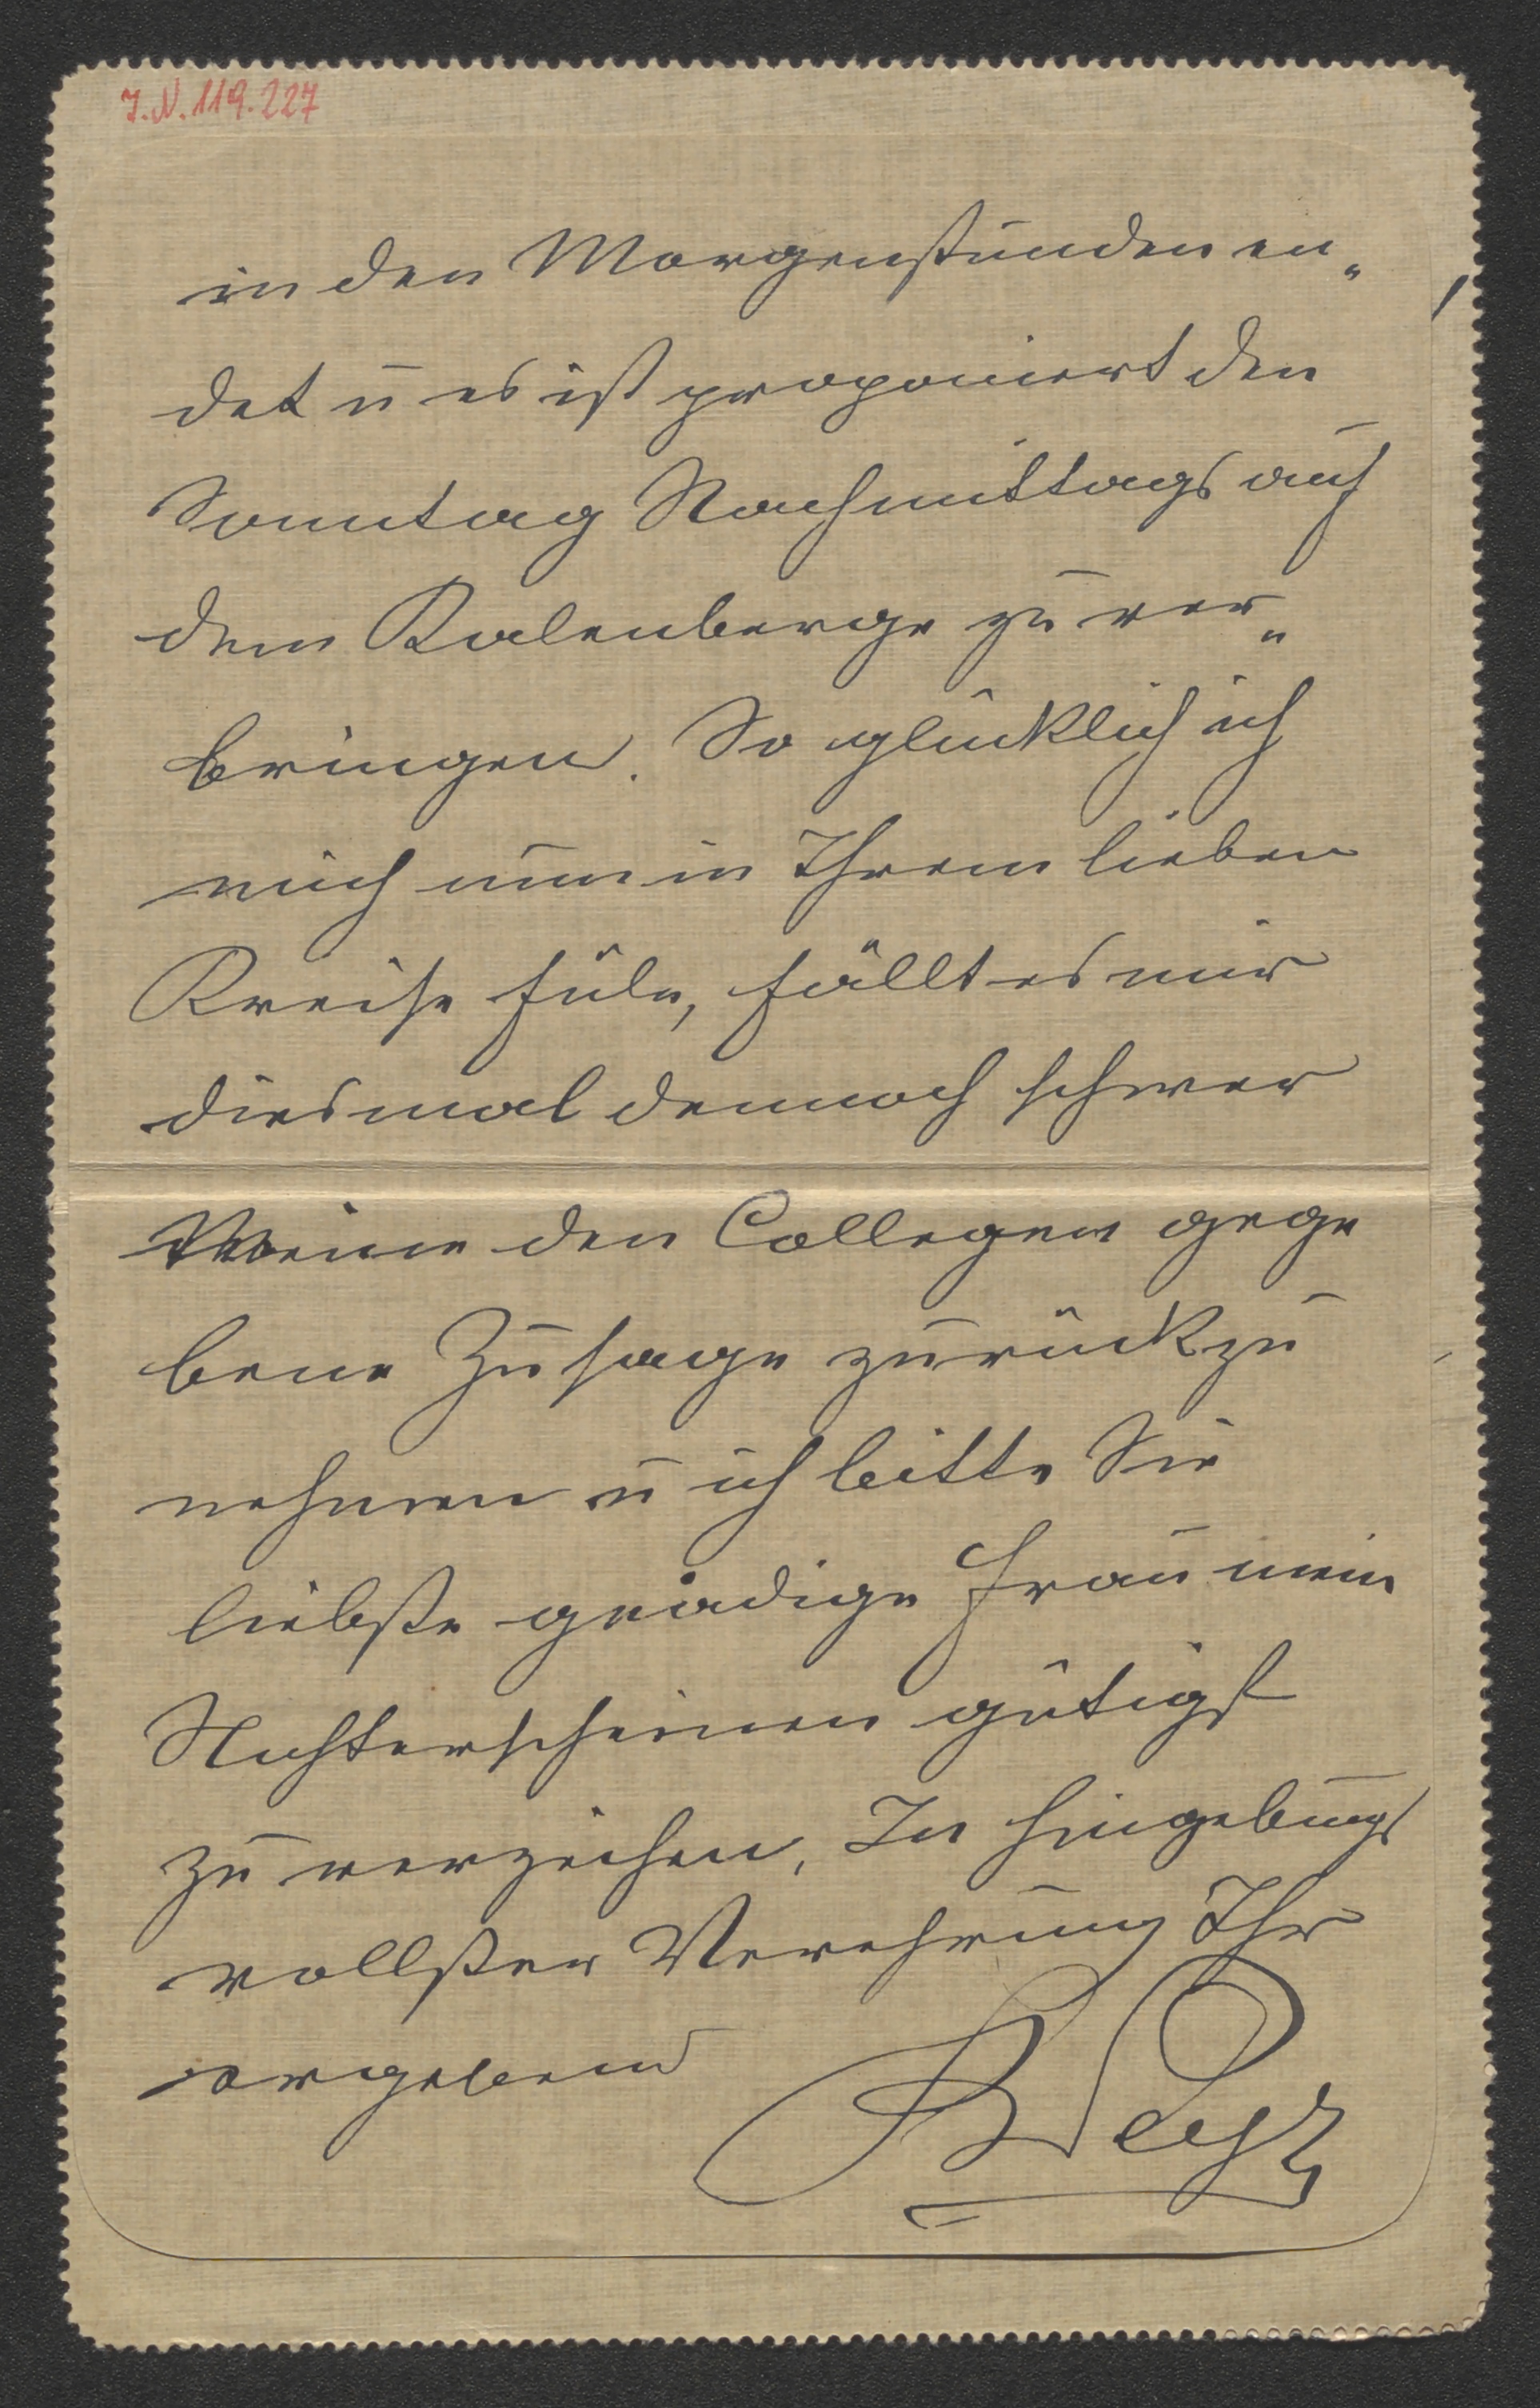 I.N. 119.227
in den Morgenstunden en„
det ū es ist proponiert den
Sonntag Nachmittags auf
dem Kalenberge zu ver„
bringen. So glücklich ich
mich nun in Ihrem lieben
Kreise füle, fällt es mir
diesmal dennoch schwer
Meine den Collegen gege
bene Zusage zurückzu
nehmen ū ich bitte Sie
liebste gnädige Frau mein
Nichterscheinen gütigst
zu verzeihen, In hingebungs
vollster Verehrung Ihr
ergebener